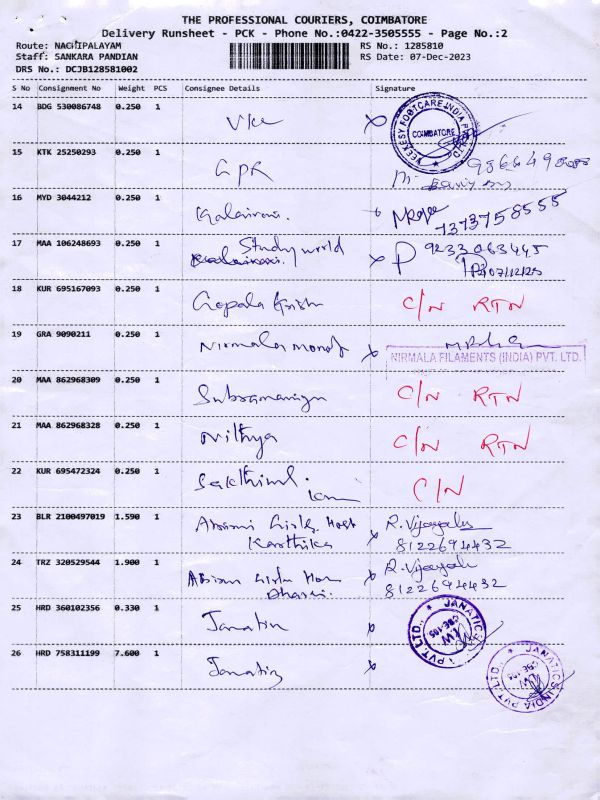 THE PROFESSIONAL COURIERS, COIMBATORE
Delivery Runsheet - PCK - Phone No.:0422-3505555 - Page No.:2
Route: NACHIPALAYAM RS No.: 1285810
Staff: SANKARA PANDIAN RS Date: 07-Dec-2023
DRS No.: DCJB128581002
S No Consignment No Weight PCS Consignee Details Signature
14 BDG 530086748 0.250 1
COIMBATORE
15 KTK 25250293 0.250 1 GPR
16 MYD 3044212 0.250 1 Kalaivani.
7373758555
17 MAA 106248693 0.250 1 Study world
9233063445
07/12/23
18 KUR 695167093 0.250 1 Gopala Krish C/N RTN
19 GRA 9090211 0.250 1 Nirmala
NIRMALA FILAMENTS (INDIA) PVT. LTD.
20 MAA 862968309 0.250 1 Subramaniyn C/N RTN
21 MAA 862968328 0.250 1 Nithya C/N RTN
22 KUR 695472324 0.250 1 C/N
23 BLR 2100497019 1.590 1 R. Vijayalu
Karthika 8122694432
24 TRZ 320529544 1.900 1
8122694432
25 HRD 360102356 0.330 1 Janatin
JANATICS INDIA PVT. LTD.
26 HRD 758311199 7.600 1 Janatin
JANATICS INDIA PVT. LTD.